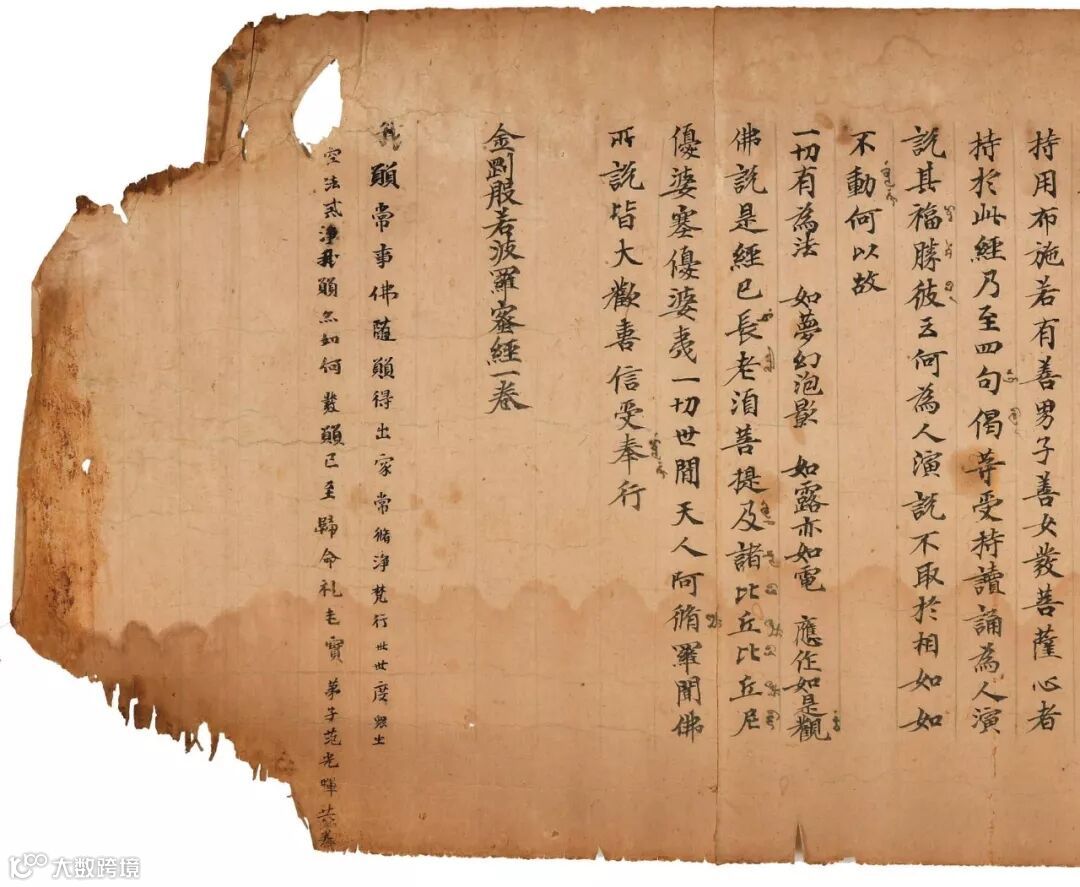 持用布施若有善男子善女發菩薩心者
持於此經乃至四句偈等受持讀誦為人演
說其福勝彼云何為人演說不取於相如如
不動何以故
一切有為法 如夢幻泡影 如露亦如電 應作如是觀
佛說是經已長老須菩提及諸比丘比丘尼
優婆塞優婆夷一切世間天人阿脩羅聞佛
所說皆大歡喜信受奉行
金剛般若波羅蜜經一卷
願常事佛隨願得出家常脩淨梵行世世度
空法 淨我願 如何 發願已至歸命礼 寶 弟子范光暉
大数跨境